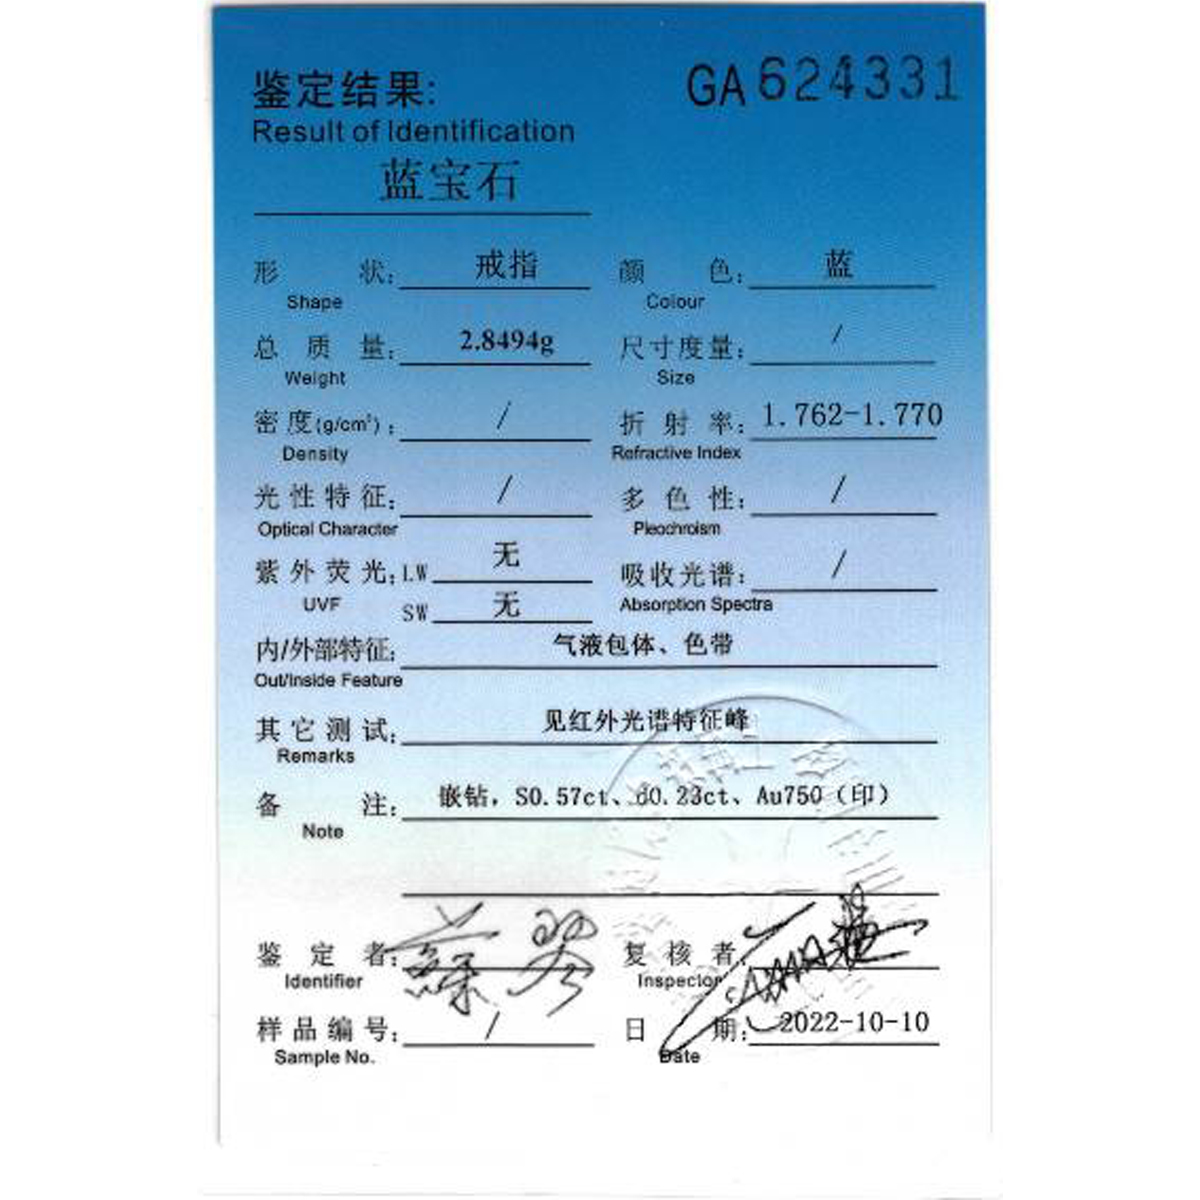 鉴定结果:
GA 624331
Result of Identification
蓝宝石
形 状: 戒指 颜 色: 蓝
Shape Colour
总 质 量: 2.8494g 尺寸度量: /
Weight Size
密度(g/cm³): / 折 射 率: 1.762-1.770
Density Refractive Index
光性特征: / 多 色 性: /
Optical Character Pleochroism
紫外荧光: LW 无 吸收光谱: /
UVF SW 无 Absorption Spectra
内/外部特征: 气液包体、色带
Out/Inside Feature
其它测试: 见红外光谱特征峰
Remarks
备 注: 嵌钻, S0.57ct、d0.23ct、Au750(印)
Note
鉴 定 者: 复 核 者:
Identifier Inspector
样品编号: / 日 期: 2022-10-10
Sample No. Date